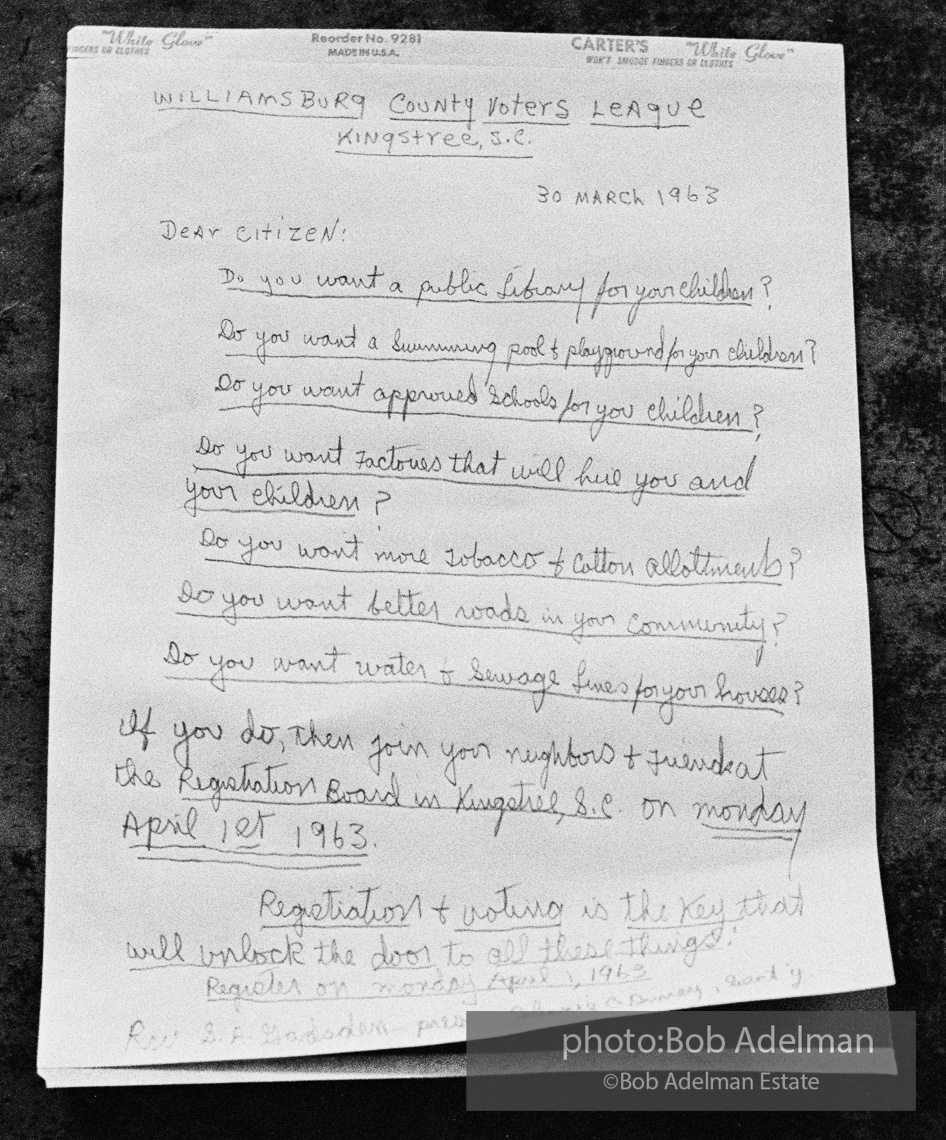 "White Glove"
FINGERS OR CLOTHES
Reorder No. 9281
MADE IN U.S.A.
CARTER'S "White Glove"
WON'T SMUDGE FINGERS OR CLOTHES
WILLIAMSBURG COUNTY VOTERS LEAGUE
KINGSTREE, S.C.
30 MARCH 1963
DEAR CITIZEN:
Do you want a public Library for your children?
Do you want a Swimming pool & playground for your children?
Do you want approved Schools for you children?
Do you want Factories that will hire you and
your children?
Do you want more Tobacco & Cotton allottments?
Do you want better roads in your Community?
Do you want water & Sewage lines for your houses?
If you do, then join your neighbors & Friends at
the Registration Board in Kingstree, S.C. on monday
April 1st 1963.
Registration & voting is the Key that
will unlock the door to all these things.
Register on monday April 1, 1963
Rev. S. A. Gadsden - pres
photo:Bob Adelman
©Bob Adelman Estate